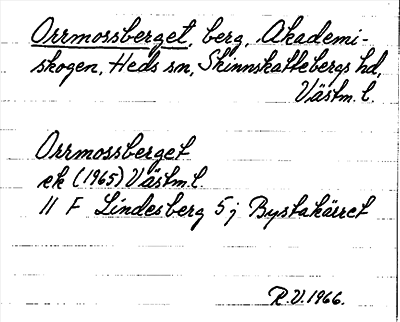 Orrmossberget, berg, Akademi-
skogen, Heds sn, Skinnskattebergs hd,
Västm. l.
Orrmossberget
ek (1965) Västm. l.
11 F Lindesberg 5 j Bystakärret
R.V. 1966.